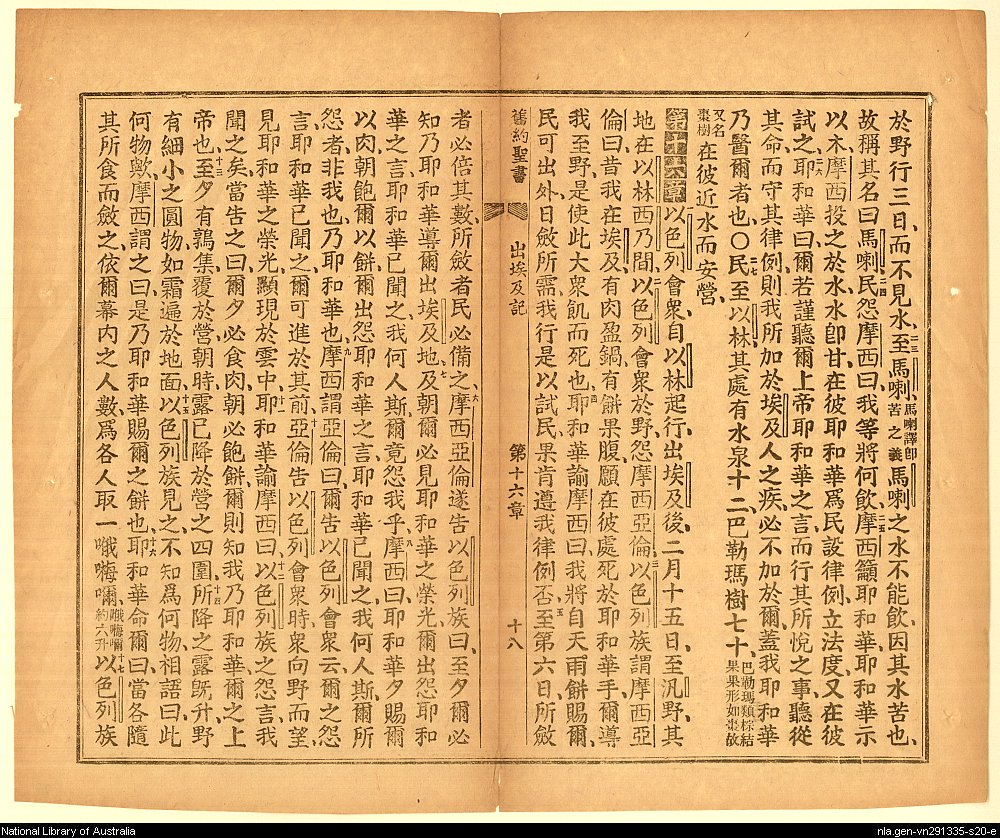 於野行三日、而不見水、二三至馬喇、馬喇譯卽苦之義馬喇之水不能飲、因其水苦也、
故稱其名曰馬喇、二四民怨摩西曰、我等將何飲、二五摩西籲耶和華、耶和華示
以木、摩西投之於水、水卽甘、在彼耶和華爲民設律例、立法度、又在彼
試之、二六耶和華曰、爾若謹聽爾上帝耶和華之言、而行其所悅之事、聽從
其命、而守其律例、則我所加於埃及人之疾、必不加於爾、蓋我耶和華
乃醫爾者也、〇二七民至以林、其處有水泉十二、巴勒瑪樹七十、巴勒瑪類棕結果果形如棗故
又名棗樹在彼近水而安營、
第十六章以色列會衆自以林起行、出埃及後、二月十五日、至汛野、其
地在以林西乃間、二以色列會衆於野怨摩西亞倫、三以色列族謂摩西亞
倫曰、昔我在埃及、有肉盈鍋、有餅果腹、願在彼處死於耶和華手、爾導
我至野、是使此大衆飢而死也、四耶和華諭摩西曰、我將自天雨餅賜爾、
民可出外、日斂所需、我行是以試民、果肯遵我律例否、五至第六日、所斂
舊約聖書 出埃及記 第十六章 十八
者必倍其數、所斂者民必備之、六摩西亞倫遂告以色列族曰、至夕爾必
知乃耶和華導爾出埃及地、七及朝爾必見耶和華之榮光、爾出怨耶和
華之言、耶和華已聞之、我何人斯、爾竟怨我乎、八摩西曰、耶和華夕賜爾
以肉、朝飽爾以餅、爾出怨耶和華之言、耶和華已聞之、我何人斯、爾所
怨者、非我也、乃耶和華也、九摩西謂亞倫曰、爾告以色列會衆云、爾之怨
言、耶和華已聞之、爾可進於其前、十亞倫告以色列會衆時、衆向野而望、
見耶和華之榮光、顯現於雲中、十一耶和華諭摩西曰、十二以色列族之怨言、我
聞之矣、當告之曰、爾夕必食肉、朝必飽餅、爾則知我乃耶和華爾之上
帝也、十三至夕有鶉集、覆於營、朝時露已降於營之四圍、十四所降之露旣升、野
有細小之圓物、如霜遍於地面、十五以色列族見之、不知爲何物、相語曰、此
何物歟、摩西謂之曰、是乃耶和華賜爾之餅也、十六耶和華命爾曰、當各隨
其所食而斂之、依爾幕內之人數、爲各人取一㖮㖼嘞、㖮㖼嘞約六升十七以色列族